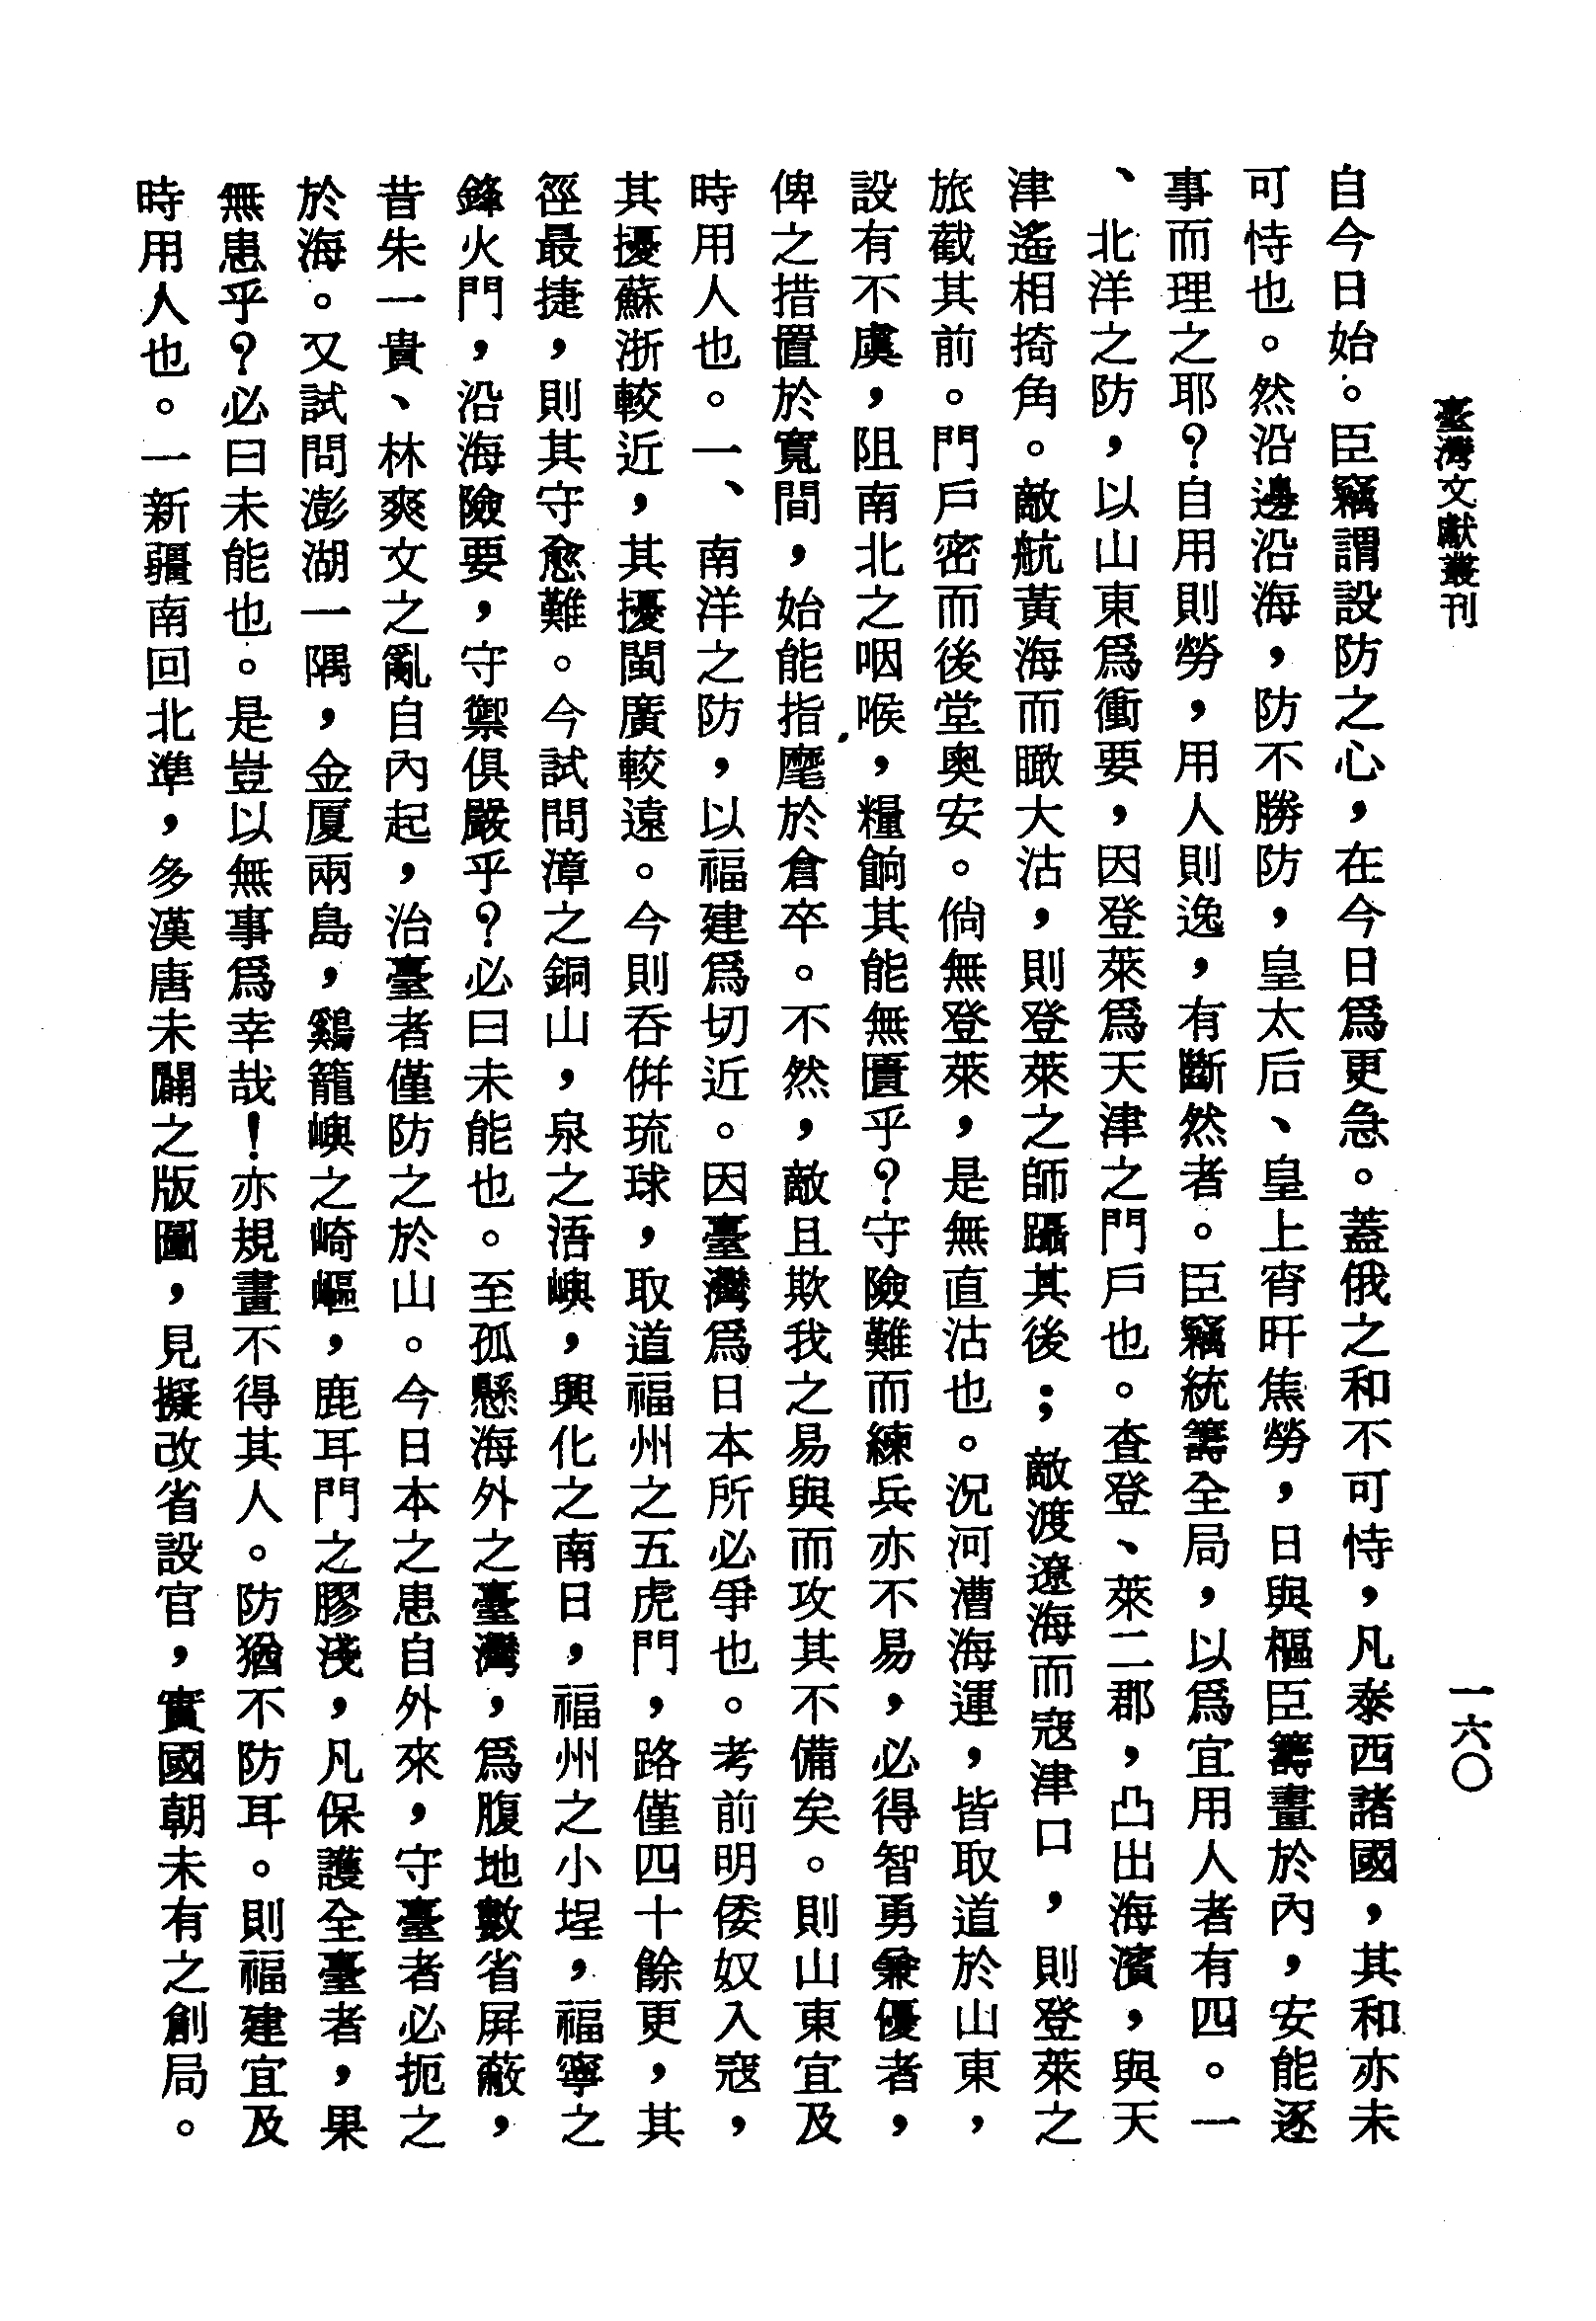 臺灣文獻叢刊
一六〇
自今日始。臣竊謂設防之心，在今日爲更急。蓋俄之和不可恃，凡泰西諸國，其和亦未
可恃也。然沿邊沿海，防不勝防，皇太后、皇上宵旰焦勞，日與樞臣籌畫於內，安能逐
事而理之耶？自用則勞，用人則逸，有斷然者。臣竊統籌全局，以爲宜用人者有四。一
、北洋之防，以山東爲衝要，因登萊爲天津之門戶也。查登、萊二郡，凸出海濱，與天
津遙相掎角。敵航黃海而瞰大沽，則登萊之師躡其後；敵渡遼海而寇津口，則登萊之
旅截其前。門戶密而後堂奧安。倘無登萊，是無直沽也。況河漕海運，皆取道於山東，
設有不虞，阻南北之咽喉，糧餉其能無匱乎？守險難而練兵亦不易，必得智勇兼優者，
俾之措置於寬閒，始能指麾於倉卒。不然，敵且欺我之易與而攻其不備矣。則山東宜及
時用人也。一、南洋之防，以福建爲切近。因臺灣爲日本所必爭也。考前明倭奴入寇，
其擾蘇浙較近，其擾閩廣較遠。今則吞併琉球，取道福州之五虎門，路僅四十餘更，其
徑最捷，則其守愈難。今試問漳之銅山，泉之浯嶼，興化之南日，福州之小埕，福寧之
鋒火門，沿海險要，守禦俱嚴乎？必曰未能也。至孤懸海外之臺灣，爲腹地數省屏蔽，
昔朱一貴、林爽文之亂自內起，治臺者僅防之於山。今日本之患自外來，守臺者必扼之
於海。又試問澎湖一隅，金厦兩島，鷄籠嶼之崎嶇，鹿耳門之膠淺，凡保護全臺者，果
無患乎？必曰未能也。是豈以無事爲幸哉！亦規畫不得其人。防猶不防耳。則福建宜及
時用人也。一新疆南回北準，多漢唐未闢之版圖，見擬改省設官，實國朝未有之創局。